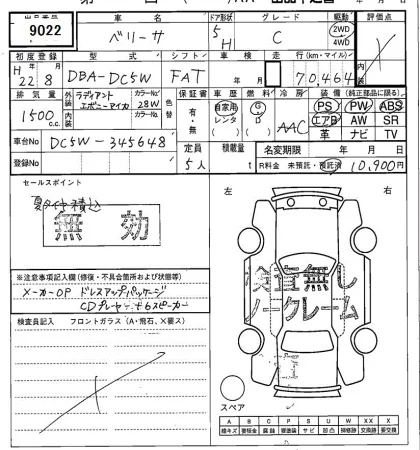 出品番号 車名 ドア形状 グレード 駆動 評価点
9022 ベリーサ 5 H C 2WD 4WD
初度登録 型式 シフト 車検 走行(km・マイル)
H 22 8 DBA-DC5W FAT 年 月 70,464
排気量 外装 ラディアント エボニーマイカ カラーNo. 28W 色替 保証書 車歴 燃料 冷房 装備(純正部品に限る)
1500 c.c. 内装 カラーNo. 有・無 自家用 レンタ G D AAC PS PW ABS
エアB AW SR
革 ナビ TV
車台No DC5W-345648 定員 積載量 名変期限 年 月 日
登録No 5人 t R料金 未預託・預託済 10,900円
セールスポイント
夏タイヤ積込
無効
左 右
検査無し
ノークレーム
※注意事項記入欄(修復・不具合箇所および状態等)
メーカーOP ドレスアップパッケージ
CDプレーヤー+6スピーカー
検査員記入 フロントガラス(A・飛石、X要ス)
スペア
A B C P S U W X XX
線キズ 要板金 腐蝕 要塗装 サビ 凹凸 補修跡 要交換 交換跡